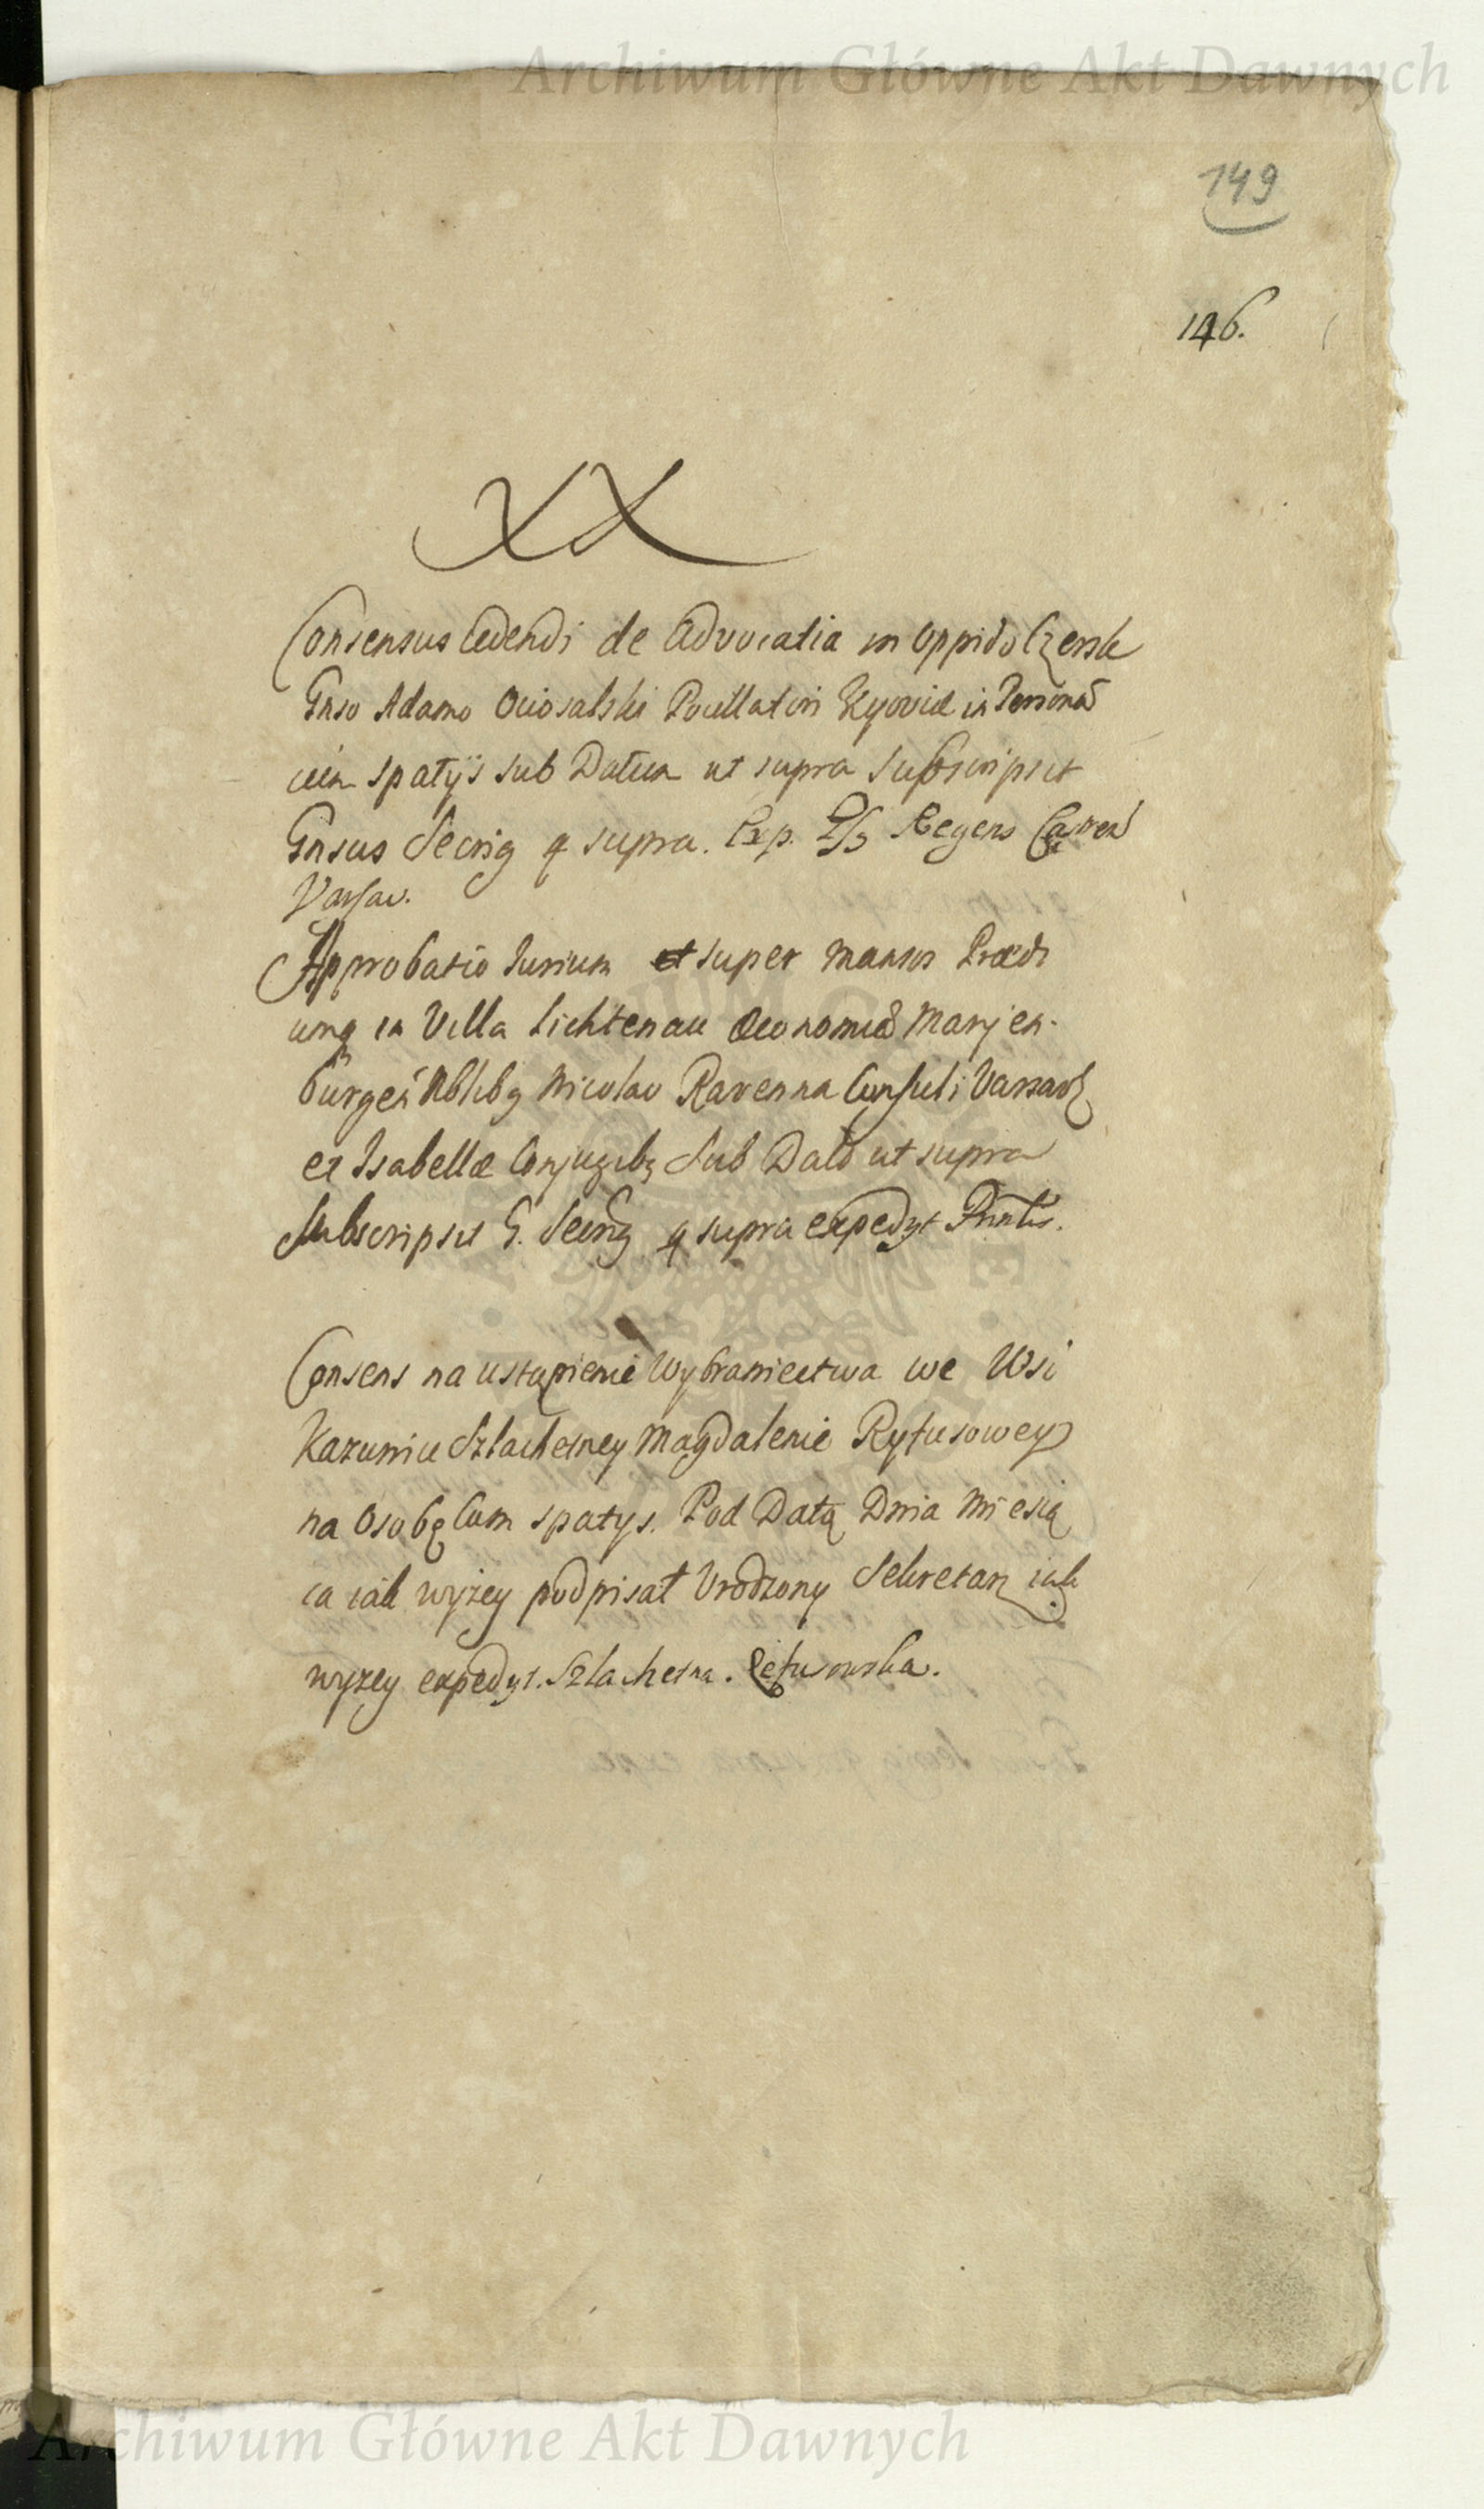 Archiwum Główne Akt Dawnych
149
146.
XX
Consensus Cedendi de Advocatia in Oppido Czersk
Gnso Adamo Ociosalski Pocillatori Kyoviæ in Persona
cum spatÿs sub Datum ut supra subscripsit
Gnsus Secrig q supra. Exp. Regens Castren
Varsav.
Approbatio Jurium et super mansos Prædi
umq in Villa Lichtenau Œconomiæ Marjen-
burgen Nblibg Nicolao Ravenna Consuli Varsav
et Isabellæ Conjugibg Sub Dato ut supra
Subscripsit G. Secrig q supra expedyt
Consens na ustąpienie Wybraniectwa we Wsi
Kazuniu Szlachetney Magdalenie Rytusowey
na Osobę Cum spatys. Pod Datą Dnia Miesią
ca iak wyżey podpisał Urodzony Sekretarz iak
wyzey expedyt. Szlachetna.
Archiwum Główne Akt Dawnych